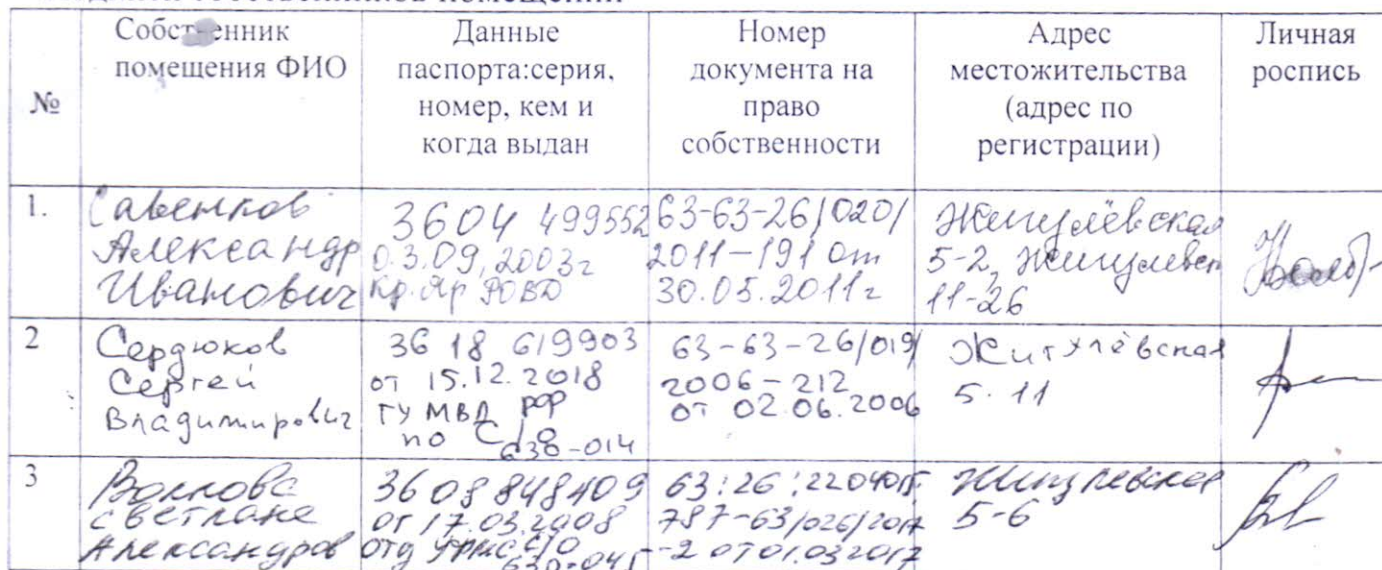 Собственник помещения ФИО
Данные паспорта:серия, номер, кем и когда выдан
Номер документа на право собственности
Адрес местожительства (адрес по регистрации)
Личная роспись
№
1.
Савенков
Александр
Иванович
3604 499552
03.09.2003г
Кр.Яр РОВД
63-63-26/020/
2011-191 от
30.05.2011г
Жигулёвская
5-2, Жигулевск
11-26
2
Сердюков
Сергей
Владимирович
36 18 619903
от 15.12.2018
ГУ МВД РФ
по С/о
630-014
63-63-26/019/
2006-212
от 02.06.2006
Жигулёвская
5-11
3
Волкова
Светлана
Александров
3608 848409
от 17.03.2008
отд УФМС С/О
63:26:
787-63/026/2017
-2 от 01.03.2017
Жигулевская
5-6